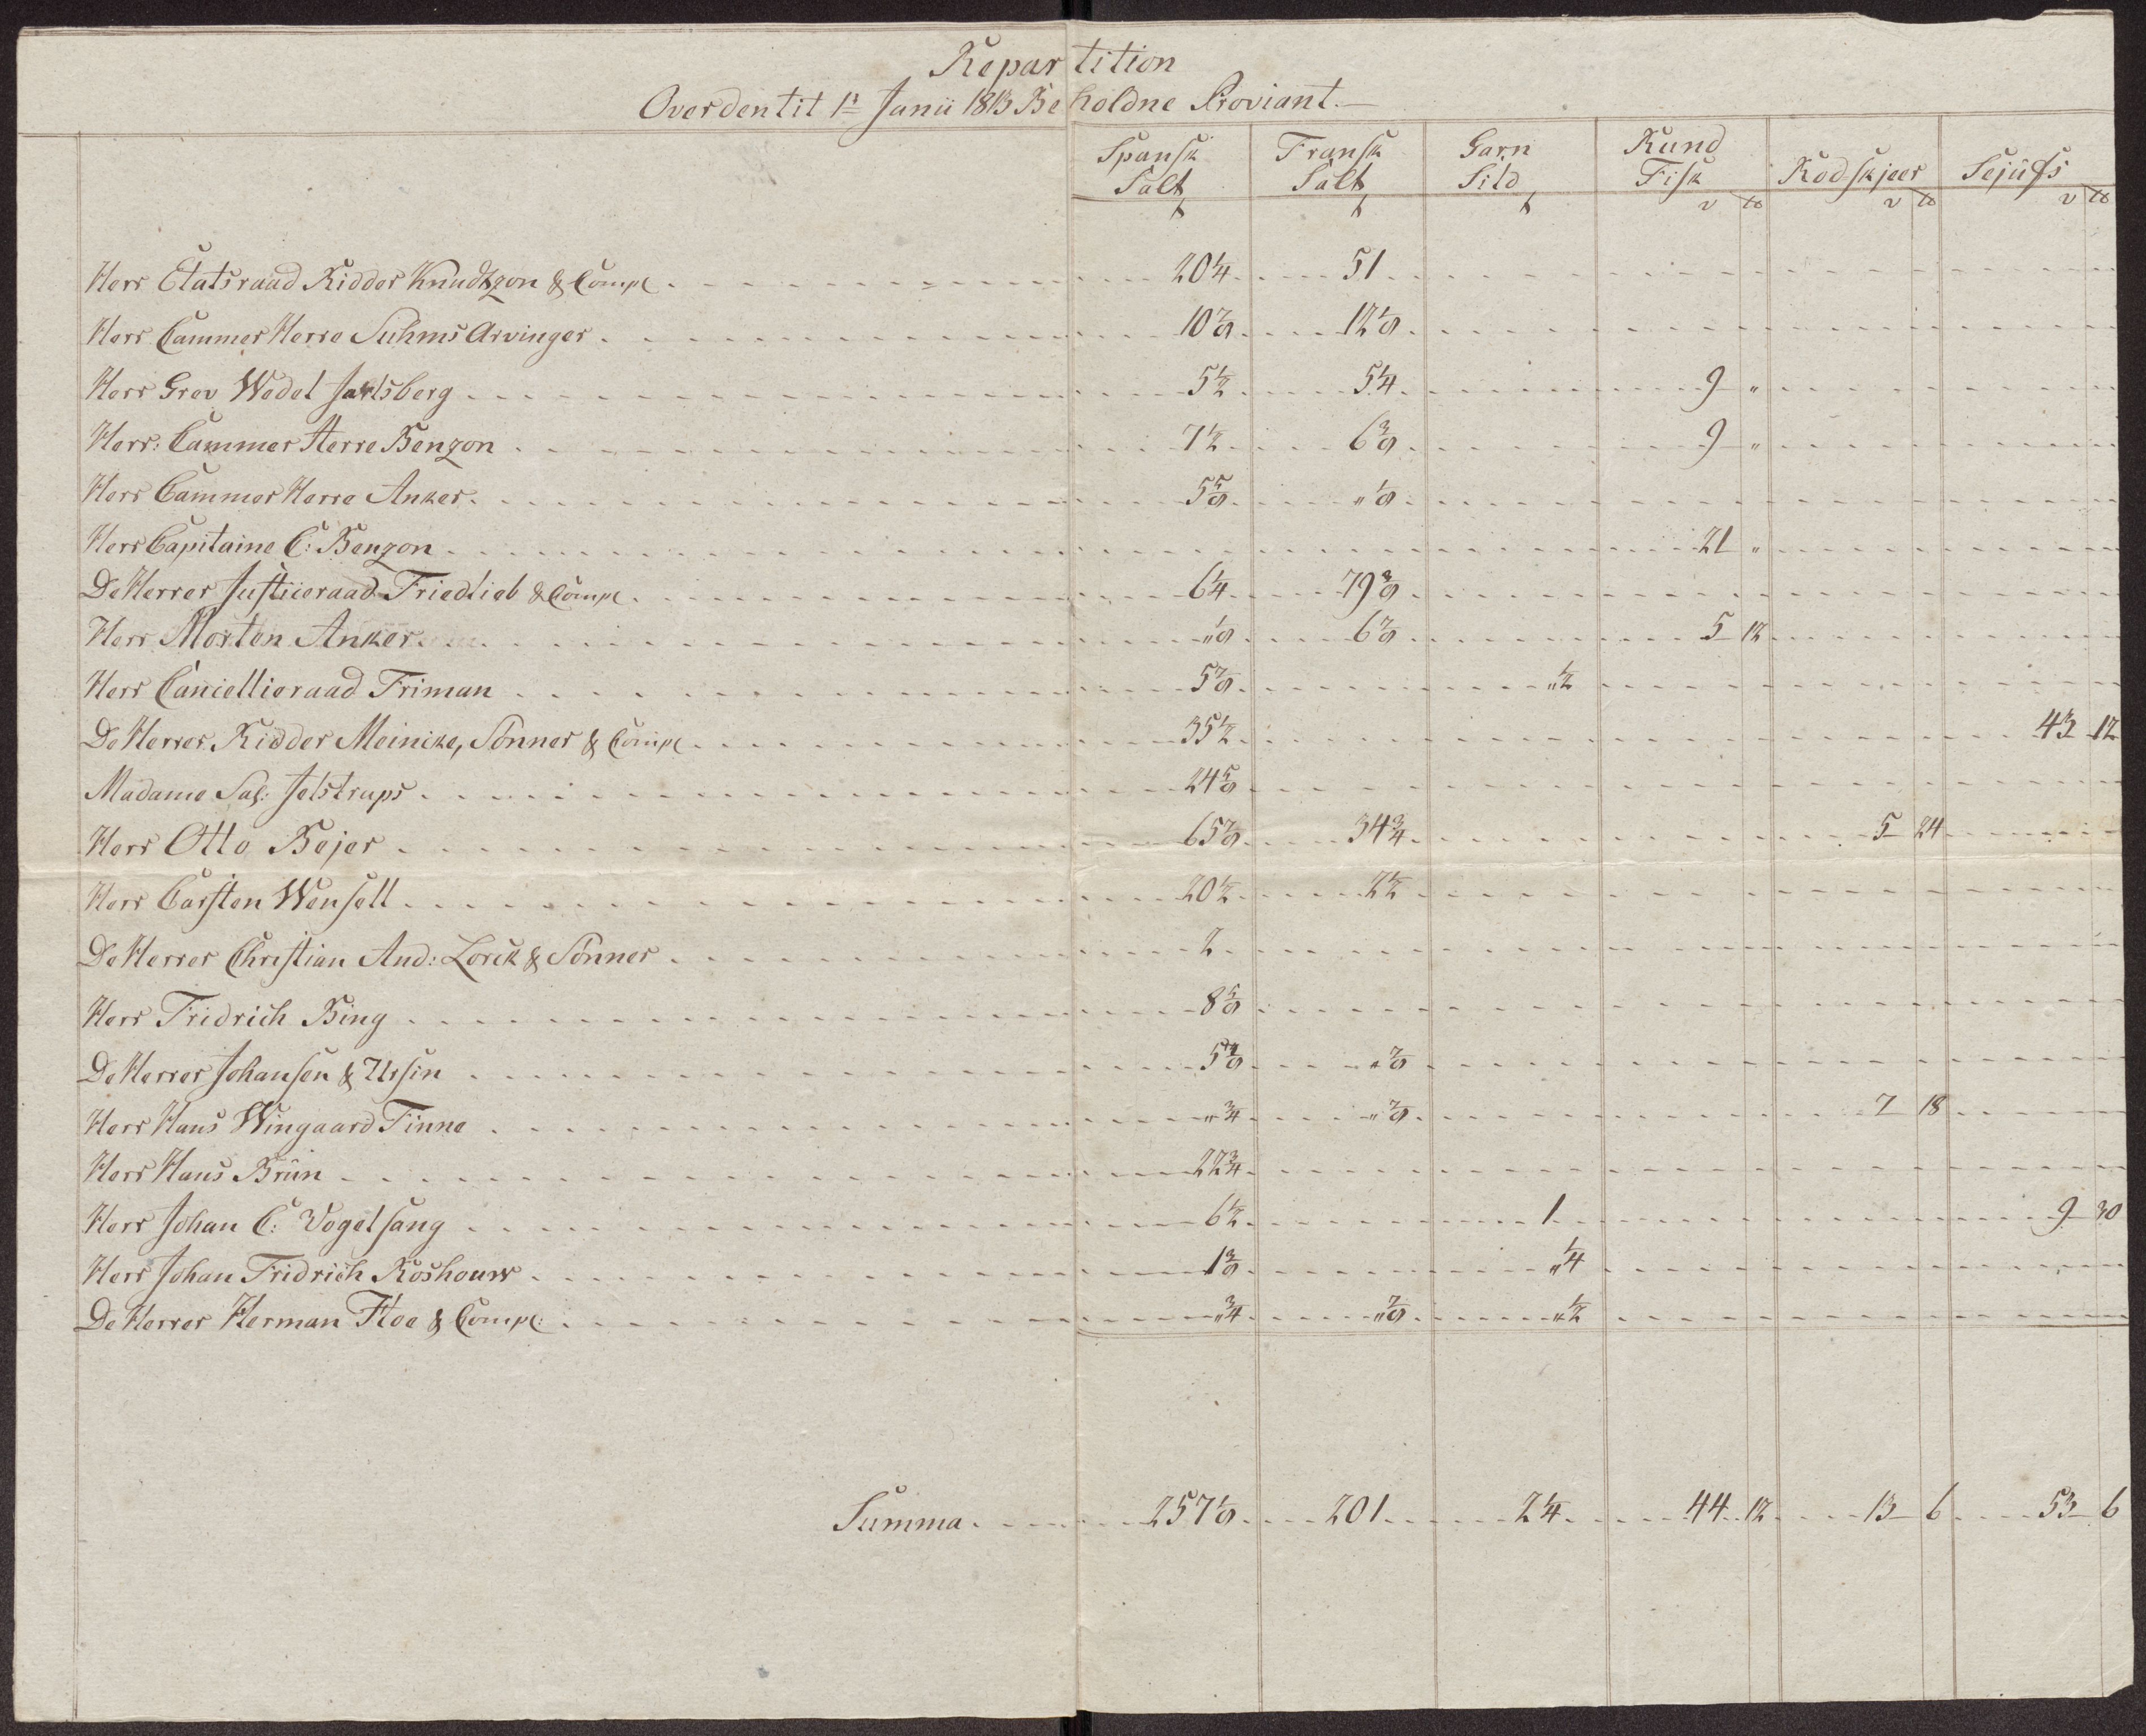 Repartition
Over den til 1ᵗ Junii 1813 Beholdne Proviant.—
Spansk Salt	Fransk Salt	Garn Sild	Rund Fisk	Rodskjeer	Sejüfs
v ℔	v ℔	v ℔
Herr Etatsraad Ridder Knudtzon & Comp 20 1/4 51
Herr Cammer Herre Suhms Arvinger 10 7/8 12 1/8
Herr Grev Wedel Jarlsberg 5 1/2 5 1/4 9 "
Herr: Cammer Herre Benzon 7 1/2 6 3/8 9 "
Herr Cammer Herre Anker 5 5/8 " 1/8
Herr Capitaine C: Benzon 21 "
De Herrer Justiceraad Friedlieb & Comp 6 1/4 79 3/8
Herr Morten Anker " 1/8 6 7/8 5 12
Herr Cancellieraad Friman 5 7/8 " 1/2
De Herrer Ridder Meincke, Sönner & Comp 35 1/2 43 12
Madame Sal: Jelstrups 24 5/8
Herr Otto Bejer 65 7/8 34 3/4 5 24
Herr Carsten Wensell 20 1/2 2 1/2
De Herrer Christian And: Lorck & Sönner 2
Herr Fridrich Bing 8 5/8
De Herrer Johansen & Ursin 5 7/8 " 7/8
Herr Hans Wingaard Finne " 3/4 " 7/8 7 18
Herr Hans Brün 22 3/4
Herr Johan C: Vogelsang 6 1/2 1 9 30
Herr Johan Fridrich Roshouw 1 3/8 " 1/4
De Herrer Herman Floe & Comp: " 3/4 " 7/8 " 1/2
Summa 257 1/8 201 2 1/4 44 12 13 6 53 6